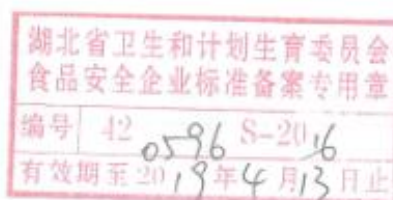 湖北省卫生和计划生育委员会
食品安全企业标准备案专用章
编号 42 0596 S-2016
有效期至2019年4月13日止